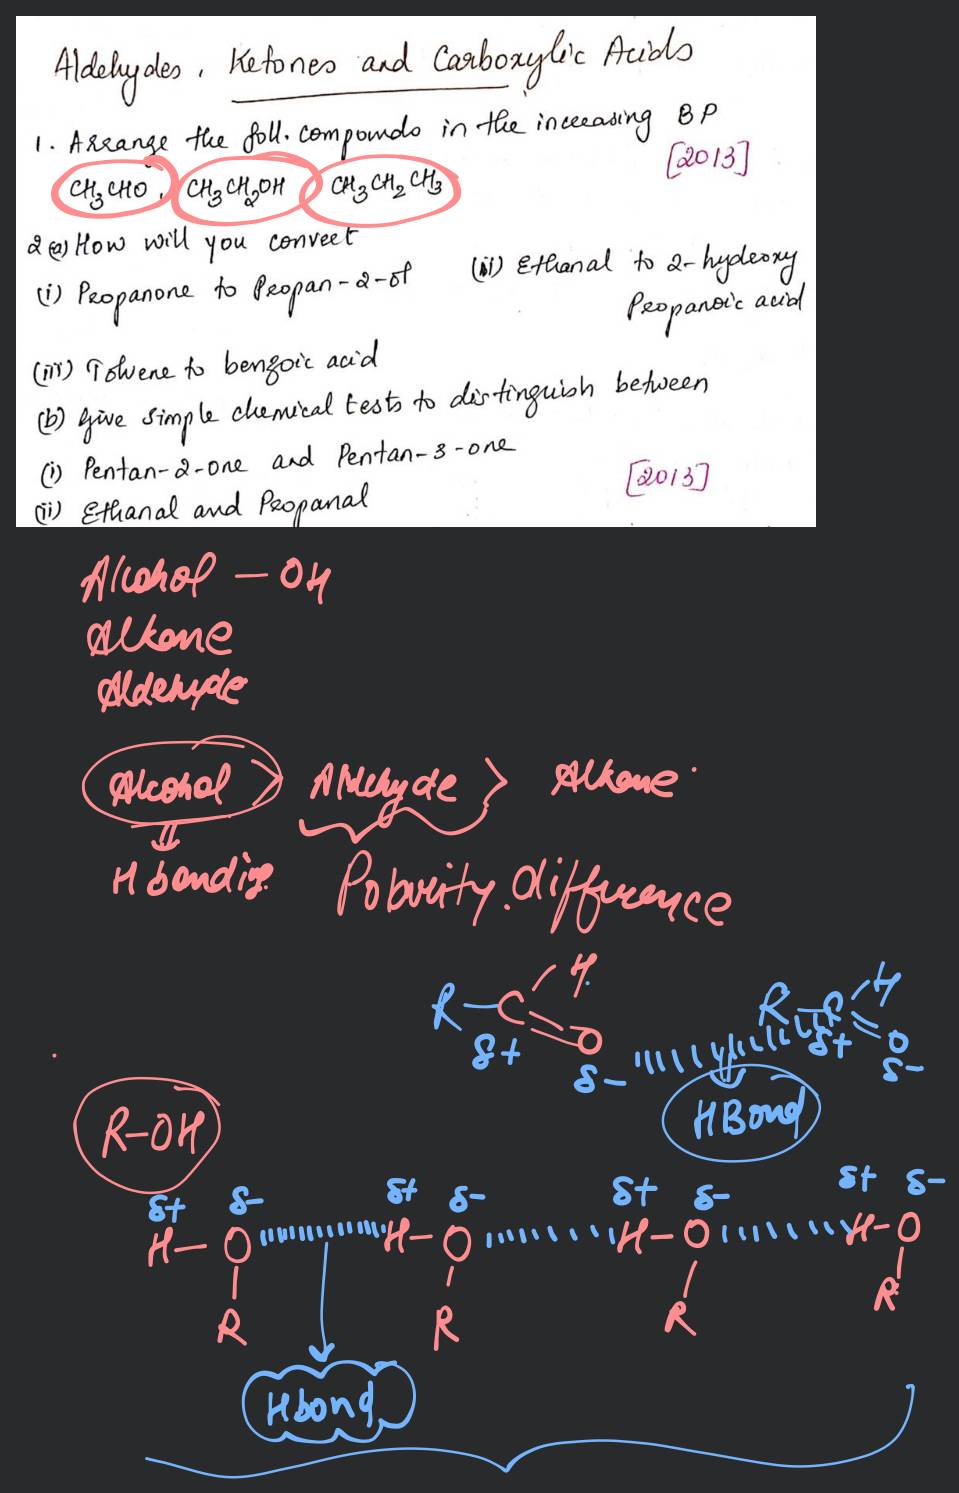 Aldehydes, Ketones and Carboxylic Acids
1. Arrange the foll. compounds in the increasing BP
[2013]
CH3CHO, CH3CH2OH CH3CH2CH3
2(a) How will you convert
(i) Propanone to Propan-2-ol
(ii) Ethanal to 2-hydroxy
Propanoic acid
(iii) Toluene to benzoic acid
(b) Give simple chemical tests to distinguish between
(i) Pentan-2-one and Pentan-3-one
[2013]
(ii) Ethanal and Propanal
Alcohol - OH
Alkane
Aldehyde
Alcohol > Aldehyde > Alkane
H bonding. difference
R-C H O R-C H O
δ+ δ- δ+ δ-
H Bond
R-OH
δ+ δ- δ+ δ- δ+ δ- δ+ δ-
H-O H-O H-O H-O
R R R R
H bond